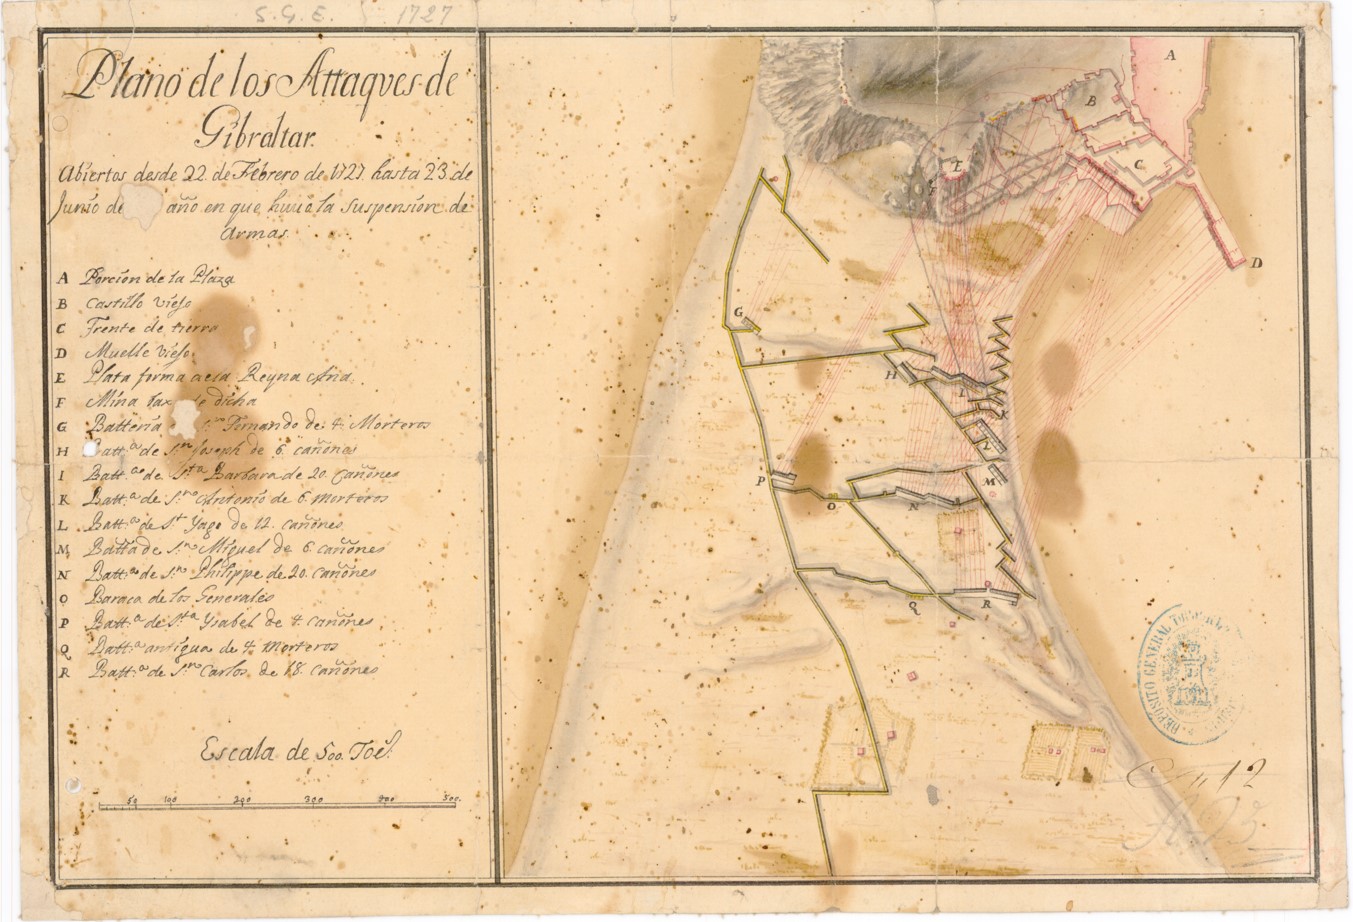 S. G. E. 1727
Plano de los Attaques de
Gibraltar.
Abiertos desde 22. de Febrero de 1727 hasta 23. de
Junio de año en que huuo la Suspension de
Armas.
A Porcion de la Plaza
B Castillo viejo
C Frente de tierra
D Muelle viejo
E Plata forma de la Reyna Ana
F Mina dicha
G Batteria Fernando de 4. Morteros
H Batt.ª de S.n Joseph de 6. cañones
I Batt.ª de S.ta Barbara de 20. cañones
K Batt.ª de S.n Antonio de 6. morteros
L Batt.ª de S.t Yago de 12. cañones
M Batt.ª de S.n Miguel de 6. cañones
N Batt.ª de S.n Philippe de 20. cañones
O Baraca de los Generales
P Batt.ª de S.ta Ysabel de 4. cañones
Q Batt.ª antigua de 4. morteros
R Batt.ª de S.n Carlos de 18. cañones
Escala de 500. Toes.
50 100 200 300 400 500.
A
B
C
E
F
D
G
H
L
M
P
O
N
Q
R
DEPOSITO GENERAL
12